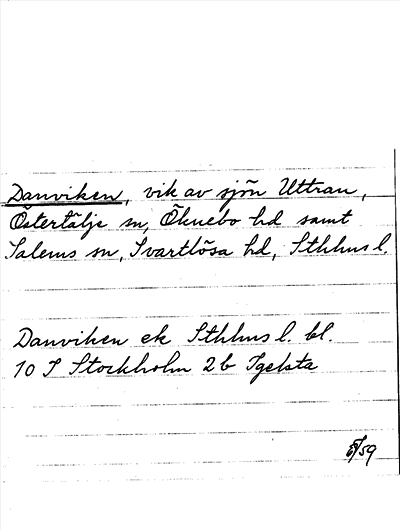 Danviken, vik av sjön Uttran,
Östertälje sn, Öknebo hd samt
Salems sn, Svartlösa hd, Sthlms l.
Danviken ek Sthlms l. bl.
10 I Stockholm 2b Igelsta
/59